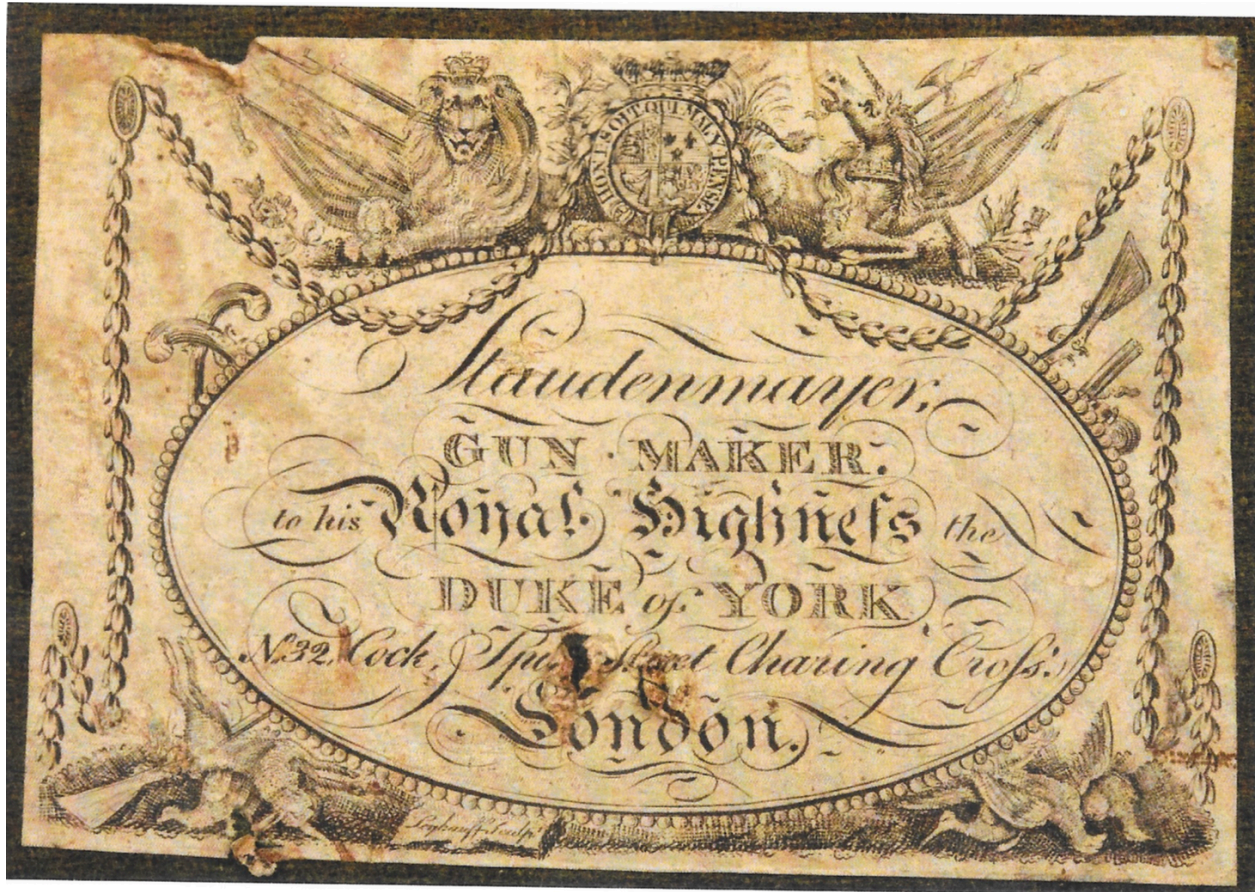 HONI SOIT QUI MAL Y PENSE
Staudenmayer,
GUN MAKER.
to his Royal Highneſs the
DUKE of YORK,
N.32, Cock, Street Charing Croſs.
London.
Sculpt